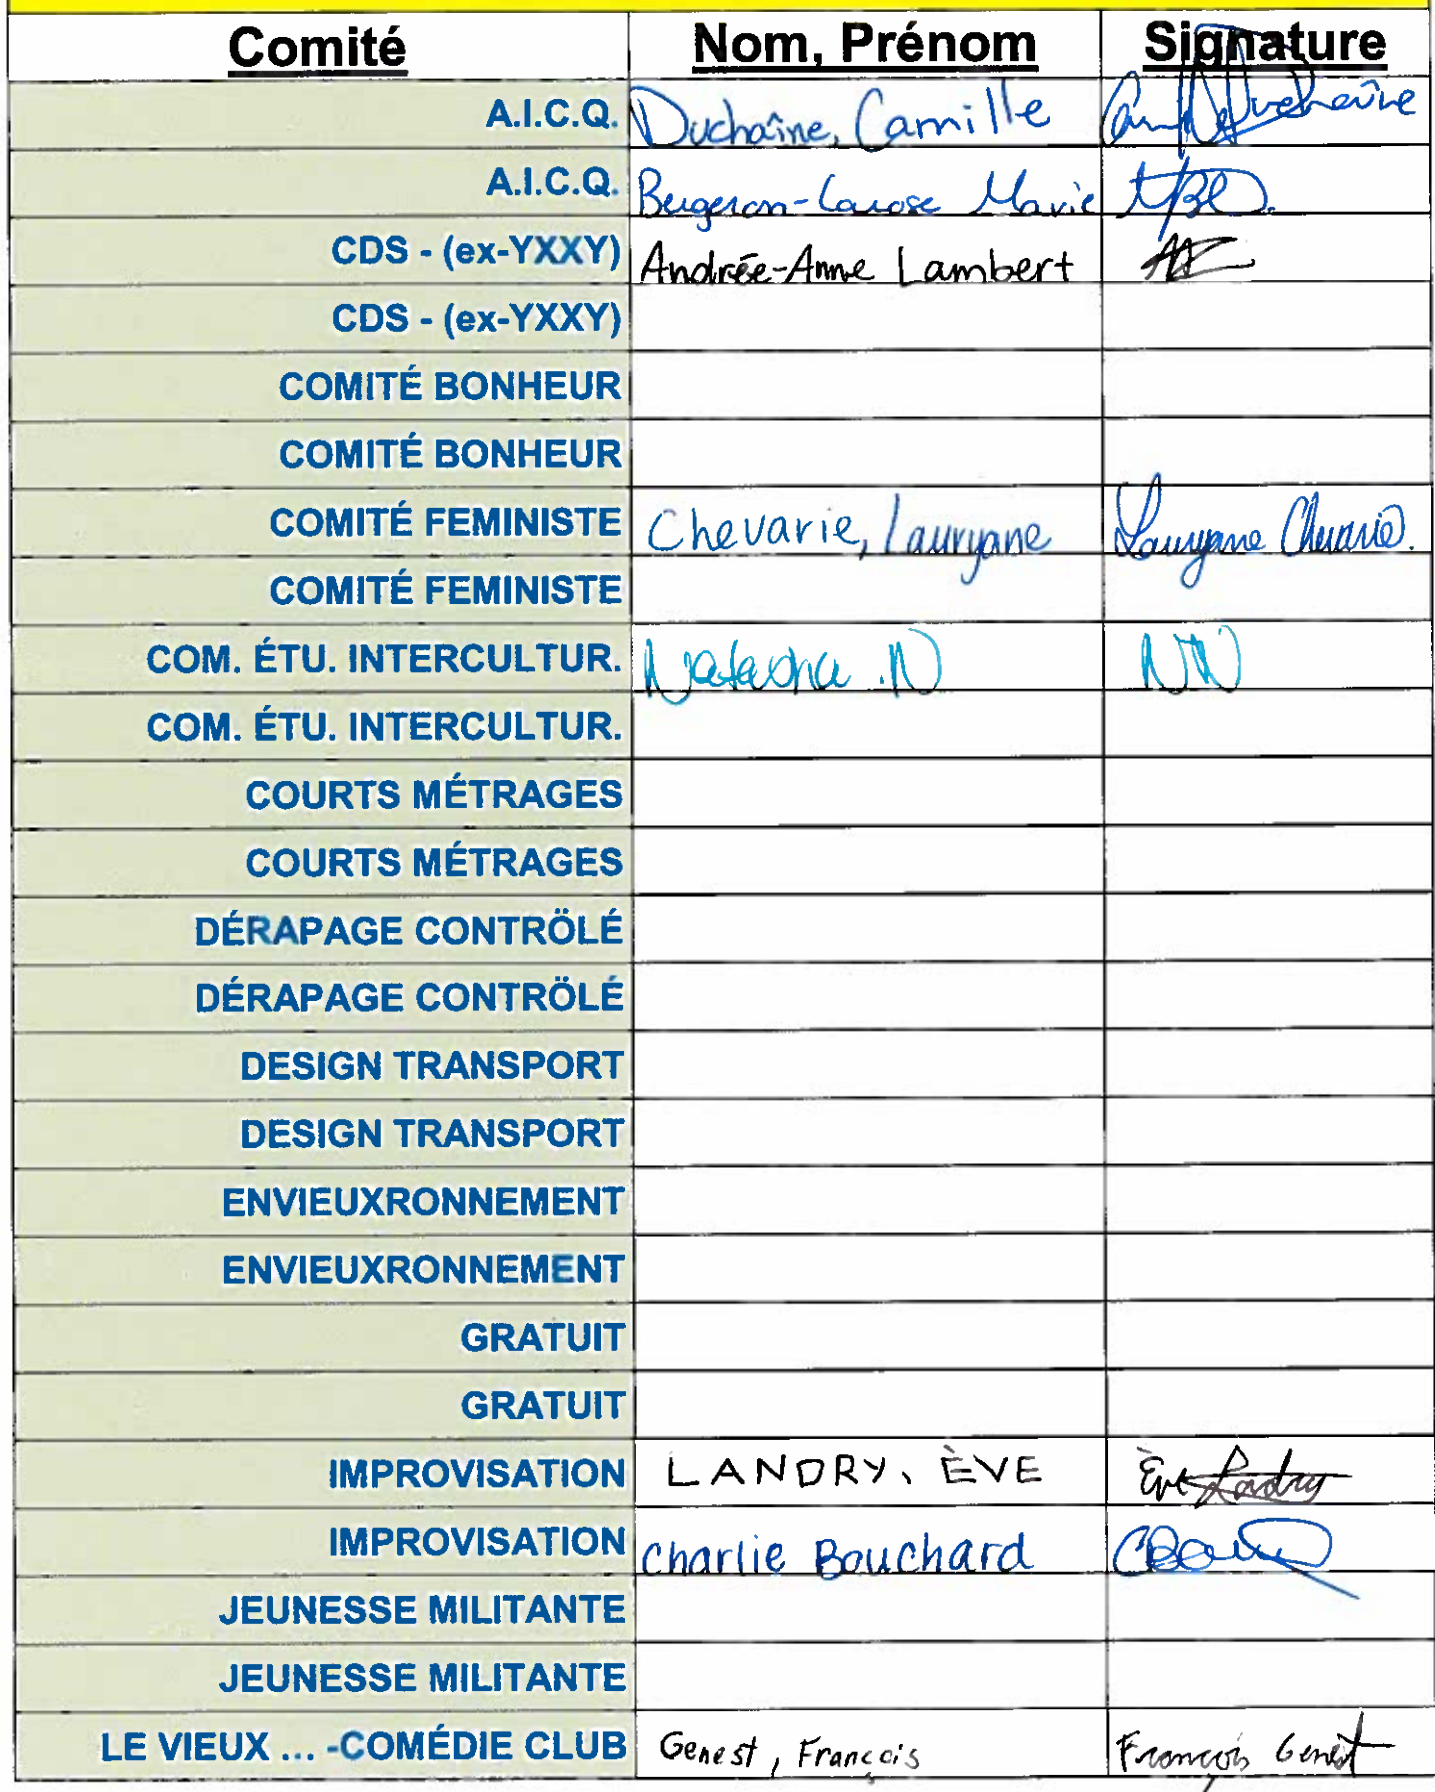 Comité Nom, Prénom Signature
A.I.C.Q. Duchaîne, Camille
A.I.C.Q. Bergeron-Larose Marie MBL.
CDS - (ex-YXXY) Andrée-Anne Lambert
CDS - (ex-YXXY)
COMITÉ BONHEUR
COMITÉ BONHEUR
COMITÉ FEMINISTE Chevarie, Lauryane Lauryane Chevarie.
COMITÉ FEMINISTE
COM. ÉTU. INTERCULTUR. Natasha .N NN
COM. ÉTU. INTERCULTUR.
COURTS MÉTRAGES
COURTS MÉTRAGES
DÉRAPAGE CONTRÖLÉ
DÉRAPAGE CONTRÖLÉ
DESIGN TRANSPORT
DESIGN TRANSPORT
ENVIEUXRONNEMENT
ENVIEUXRONNEMENT
GRATUIT
GRATUIT
IMPROVISATION LANDRY, ÈVE Ève Landry
IMPROVISATION Charlie Bouchard
JEUNESSE MILITANTE
JEUNESSE MILITANTE
LE VIEUX ... -COMÉDIE CLUB Genest, François François Genest